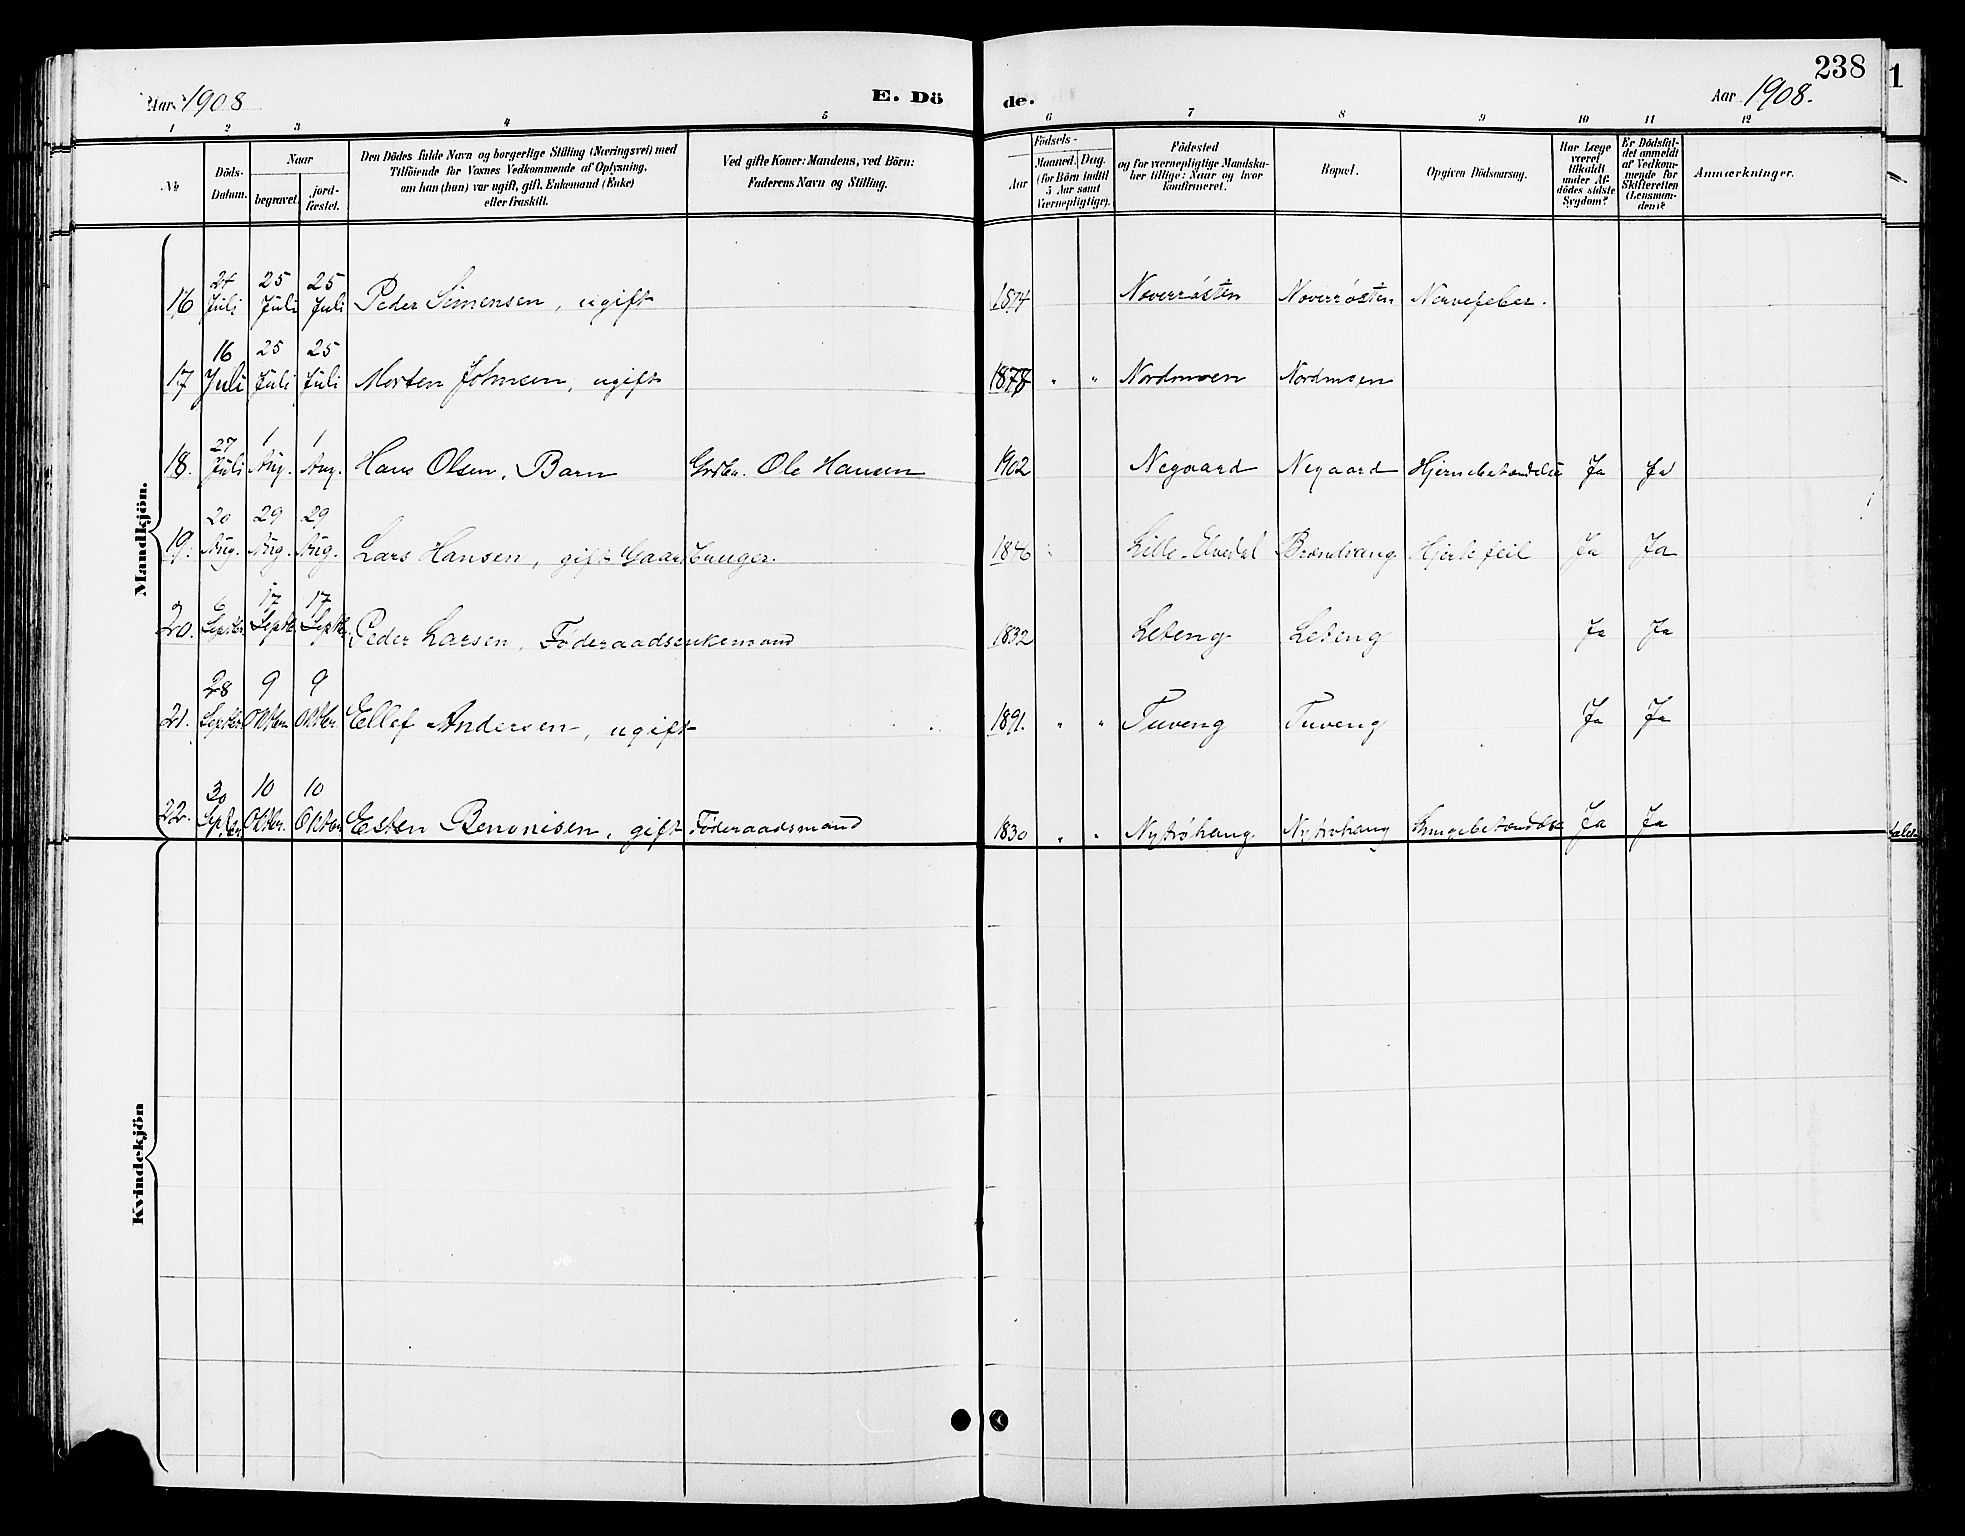 238
Aar 1908 E. Dö de. Aar 1908.
1 2 3 4 5 6 7 8 9 10 11 12
No
Döds-Datum.
Naar
begravet.
jord-fæstet.
Den Dödes fulde Navn og borgerlige Stilling (Næringsvei) med
Tilföiende for Voxnes Vedkommende af Oplysning,
om han (hun) var ugift, gift, Enkemand (Enke)
eller fraskilt.
Ved gifte Koner: Mandens, ved Börn:
Faderens Navn og Stilling.
Födsels-
Aar
Maaned. Dag.
(for Börn indtil
5 Aar samt
Værnepligtige).
Födested
og for værnepligtige Mandska-
ber tillige: Naar og hvor
konfirmeret.
Bopæl.
Opgiven Dödsaarsag.
Har Læge
været
tilkaldt
under Af-
dödes sidste
Sygdom?
Er Dödsfal-
det anmeldt
af Vedkom-
mende for
Skifteretten
(Lensman-
den)?
Anmærkninger.
Mandkjön.
16 24 Juli 25 Juli 25 Juli Peder Simensen, ugift 1874 Noverrøsten Noverrøsten Nervefeber.
17 16 Juli 25 Juli 25 Juli Morten Johnsen, ugift 1878 " " Nordmoen Nordmoen
18. 27 Juli 1 Aug. 1 Aug. Hans Olsen, Barn Grdbr. Ole Hansen 1902 Negaard Negaard Hjernebetændelse Ja Ja
19. 20 Aug. 29 Aug. 29 Aug. Lars Hansen, gift Gaardbruger. 1846 Lille-Elvedal Brændvang Hjertefeil Ja Ja
20. 6 Septbr. 17 Septbr. 17 Septbr. Peder Larsen, Føderaadsenkemand 1832 Leteng Leteng Ja Ja
21. 28 Septbr. 9 Oktbr. 9 Oktbr. Ellef Andersen, ugift 1891. " " Tuveng Tuveng Ja Ja
22. 30 Septbr. 10 Oktbr. 10 Oktbr. Esten Benonisen, gift Føderaadsmand 1830 " " Nytrøhaug Nytrøhaug Lungebetændelse Ja Ja
Kvindekjön